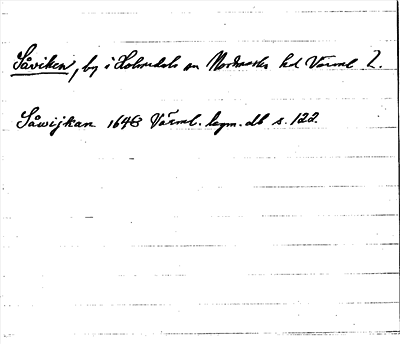 Såviken, by i Holmedals sn Nordmarks hd Värml l.
Såwijkan 1648 Värml. lagm. db s. 122.